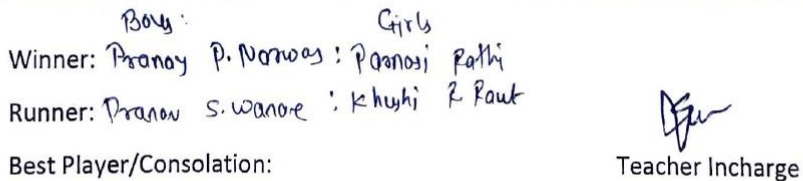 Boys: Girls
Winner: Pranay P. Narwas : Parnasi Rathi
Runner: Pranav S. Wanare : Khushi R Raut
Best Player/Consolation:
Teacher Incharge